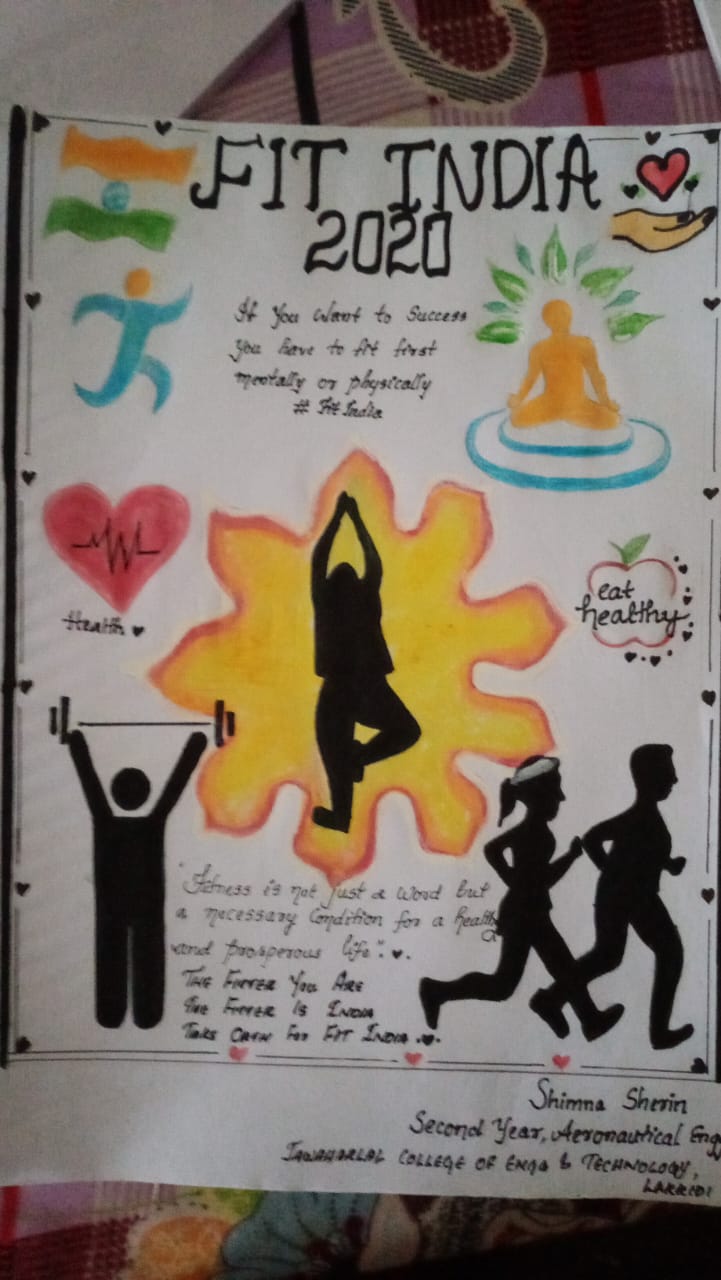 FIT INDIA
2020
If You Want to Success
You have to fit first
mentally or physically
# Fit India
Health
eat
healthy
"Fitness is not just a word but
a necessary Condition for a healthy
and prosperous life".
THE FITTER YOU ARE
THE FITTER IS INDIA
TAKE OATH FOR FIT INDIA
Shimna Sherin
Second Year, Aeronautical Eng
JAWAHARLAL COLLEGE OF ENGG & TECHNOLOGY,
LAKKIDI